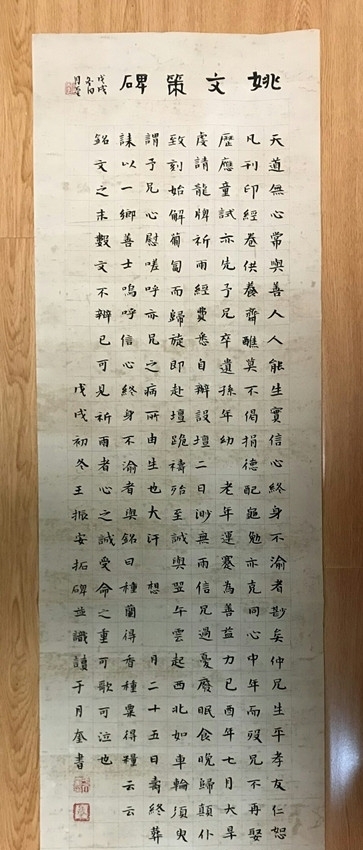 姚文策碑
戊戌
冬
月奎
天道無心常與善人人能生實信心終身不渝者尠矣仲兄生平孝友仁恕
凡刊印經卷供養齊醮莫不倡捐德配 勉亦克同心中年而歿兄不再娶
歷應童試亦先予兄卒遺孫年幼 老年運蹇為善益力己酉年七月大旱
虔請龍牌祈雨經費悉自辦設壇二日渺無雨信兄過憂廢眠食晚歸顛仆
致刻始解匍匐而歸旋即赴壇跪禱殆至誠與翌午雲起西北如車輪須臾
謂予兄心慰嗟呼亦兄之病所由生也大汗 想 月二十五日壽終葬
誄以一鄉善士嗚呼信心終身不渝者與銘曰種蘭得香種粟得糧云云
銘文之末數文不辨已可見祈雨者心之誠受命之重可歌可泣也
戊戌初冬王振安拓碑並識讀于月奎書